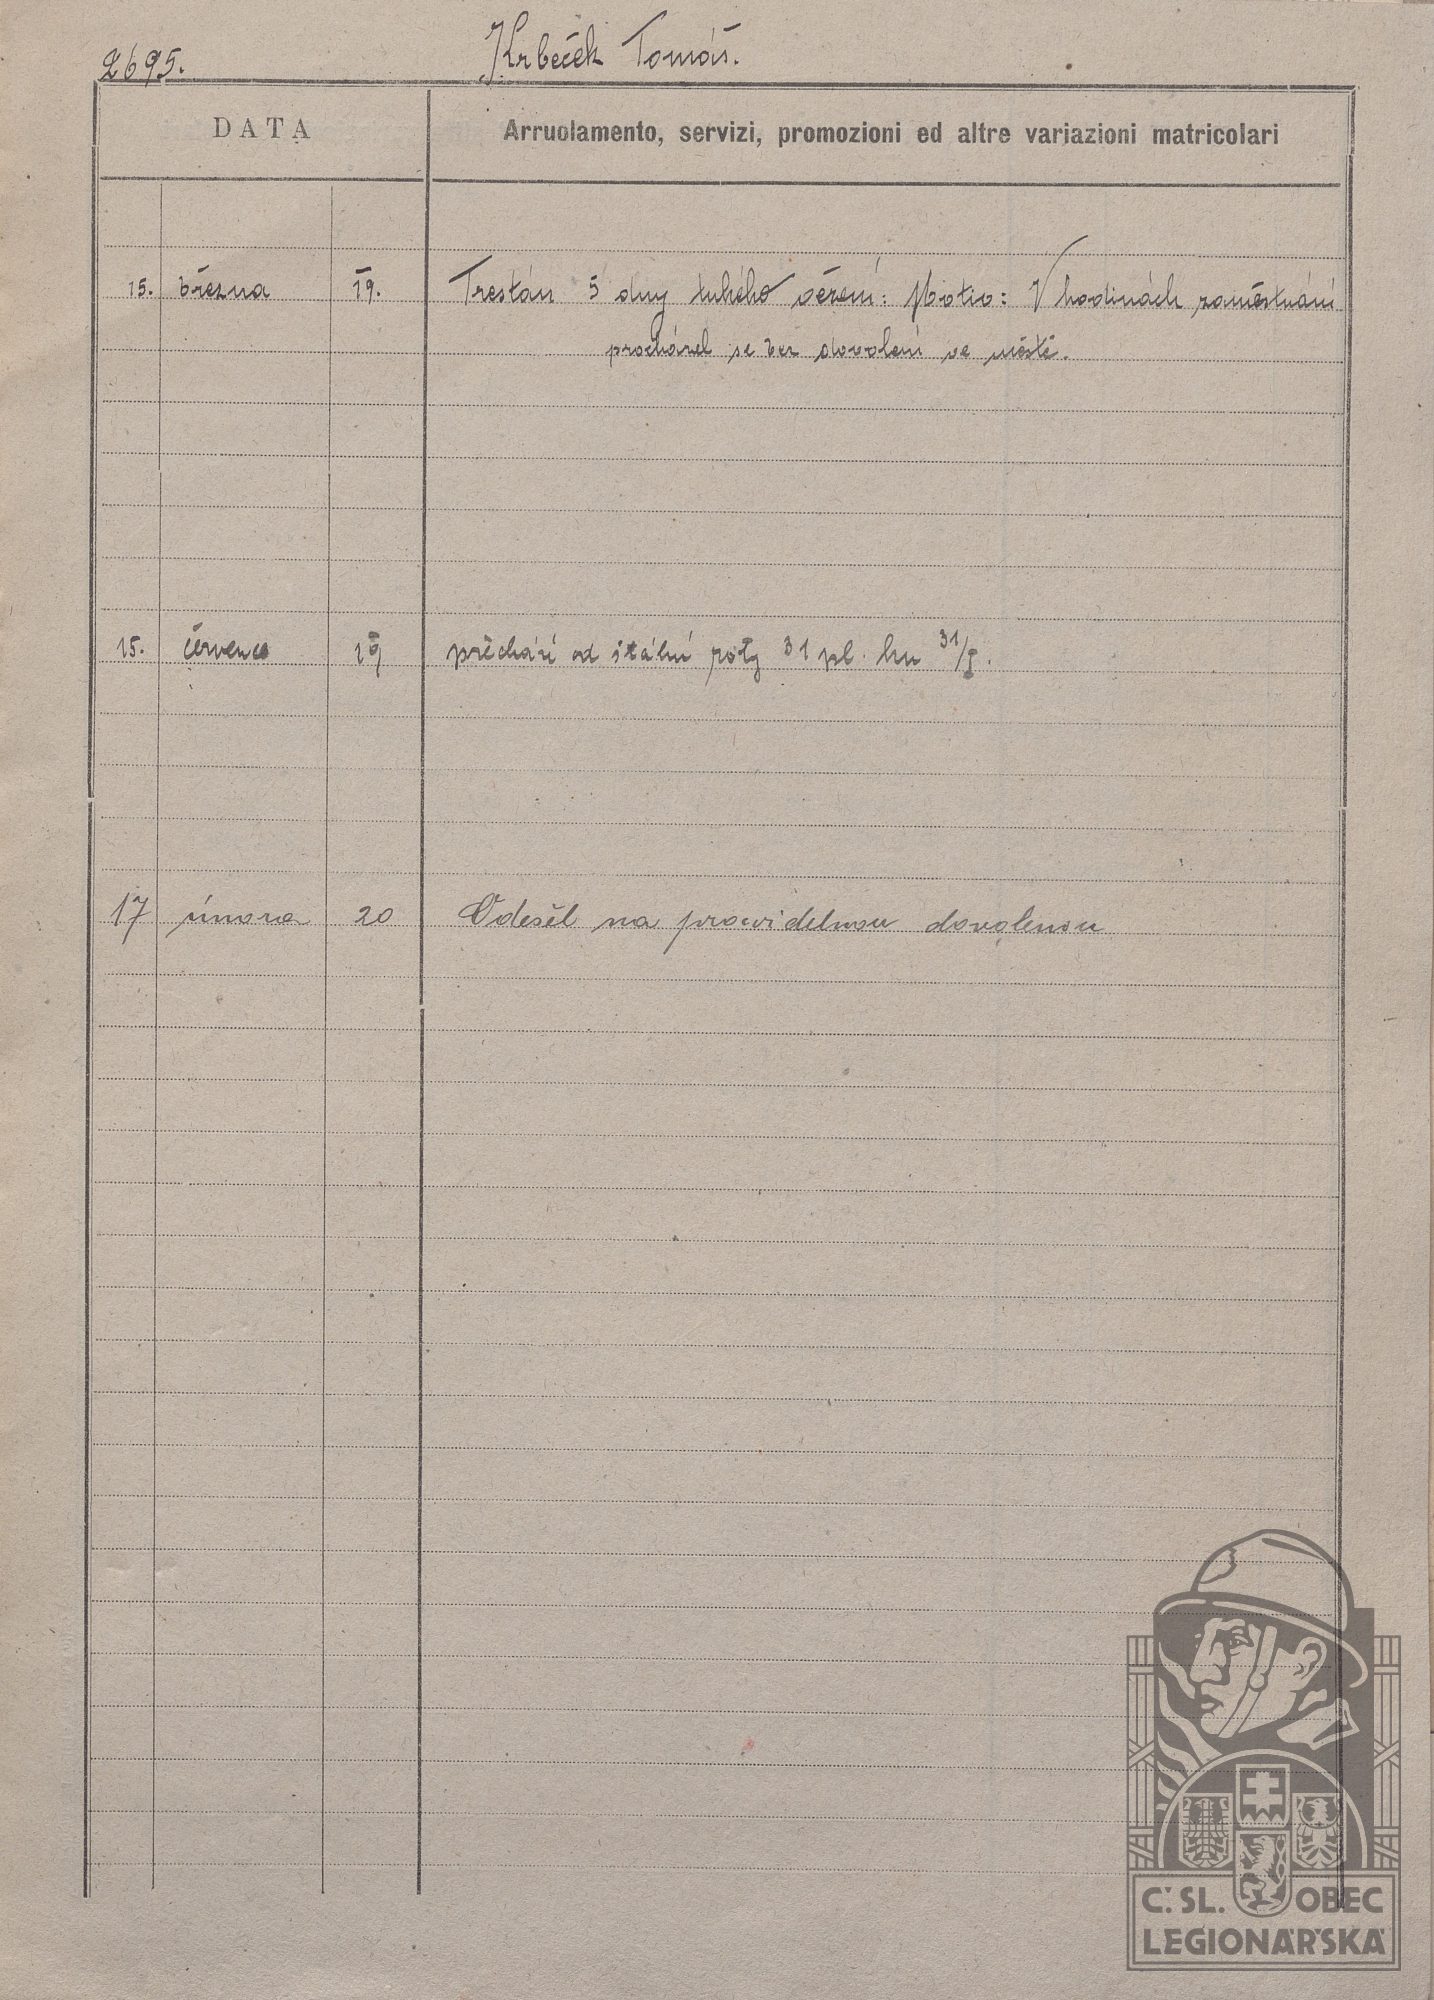 2695. Krbeček Tomáš.
DATA Arruolamento, servizi, promozioni ed altre variazioni matricolari
15. března 19. Trestán 5 dny tuhého vězení: Motiv: V hodinách zaměstnání
procházel se bez dovolení ve městě.
15. července 19 přechází od stální roty 31 pl. ku 31/I.
17 února 20 Odešel na pravidelnou dovolenou
Č. SL. OBEC
LEGIONÁŘSKÁ